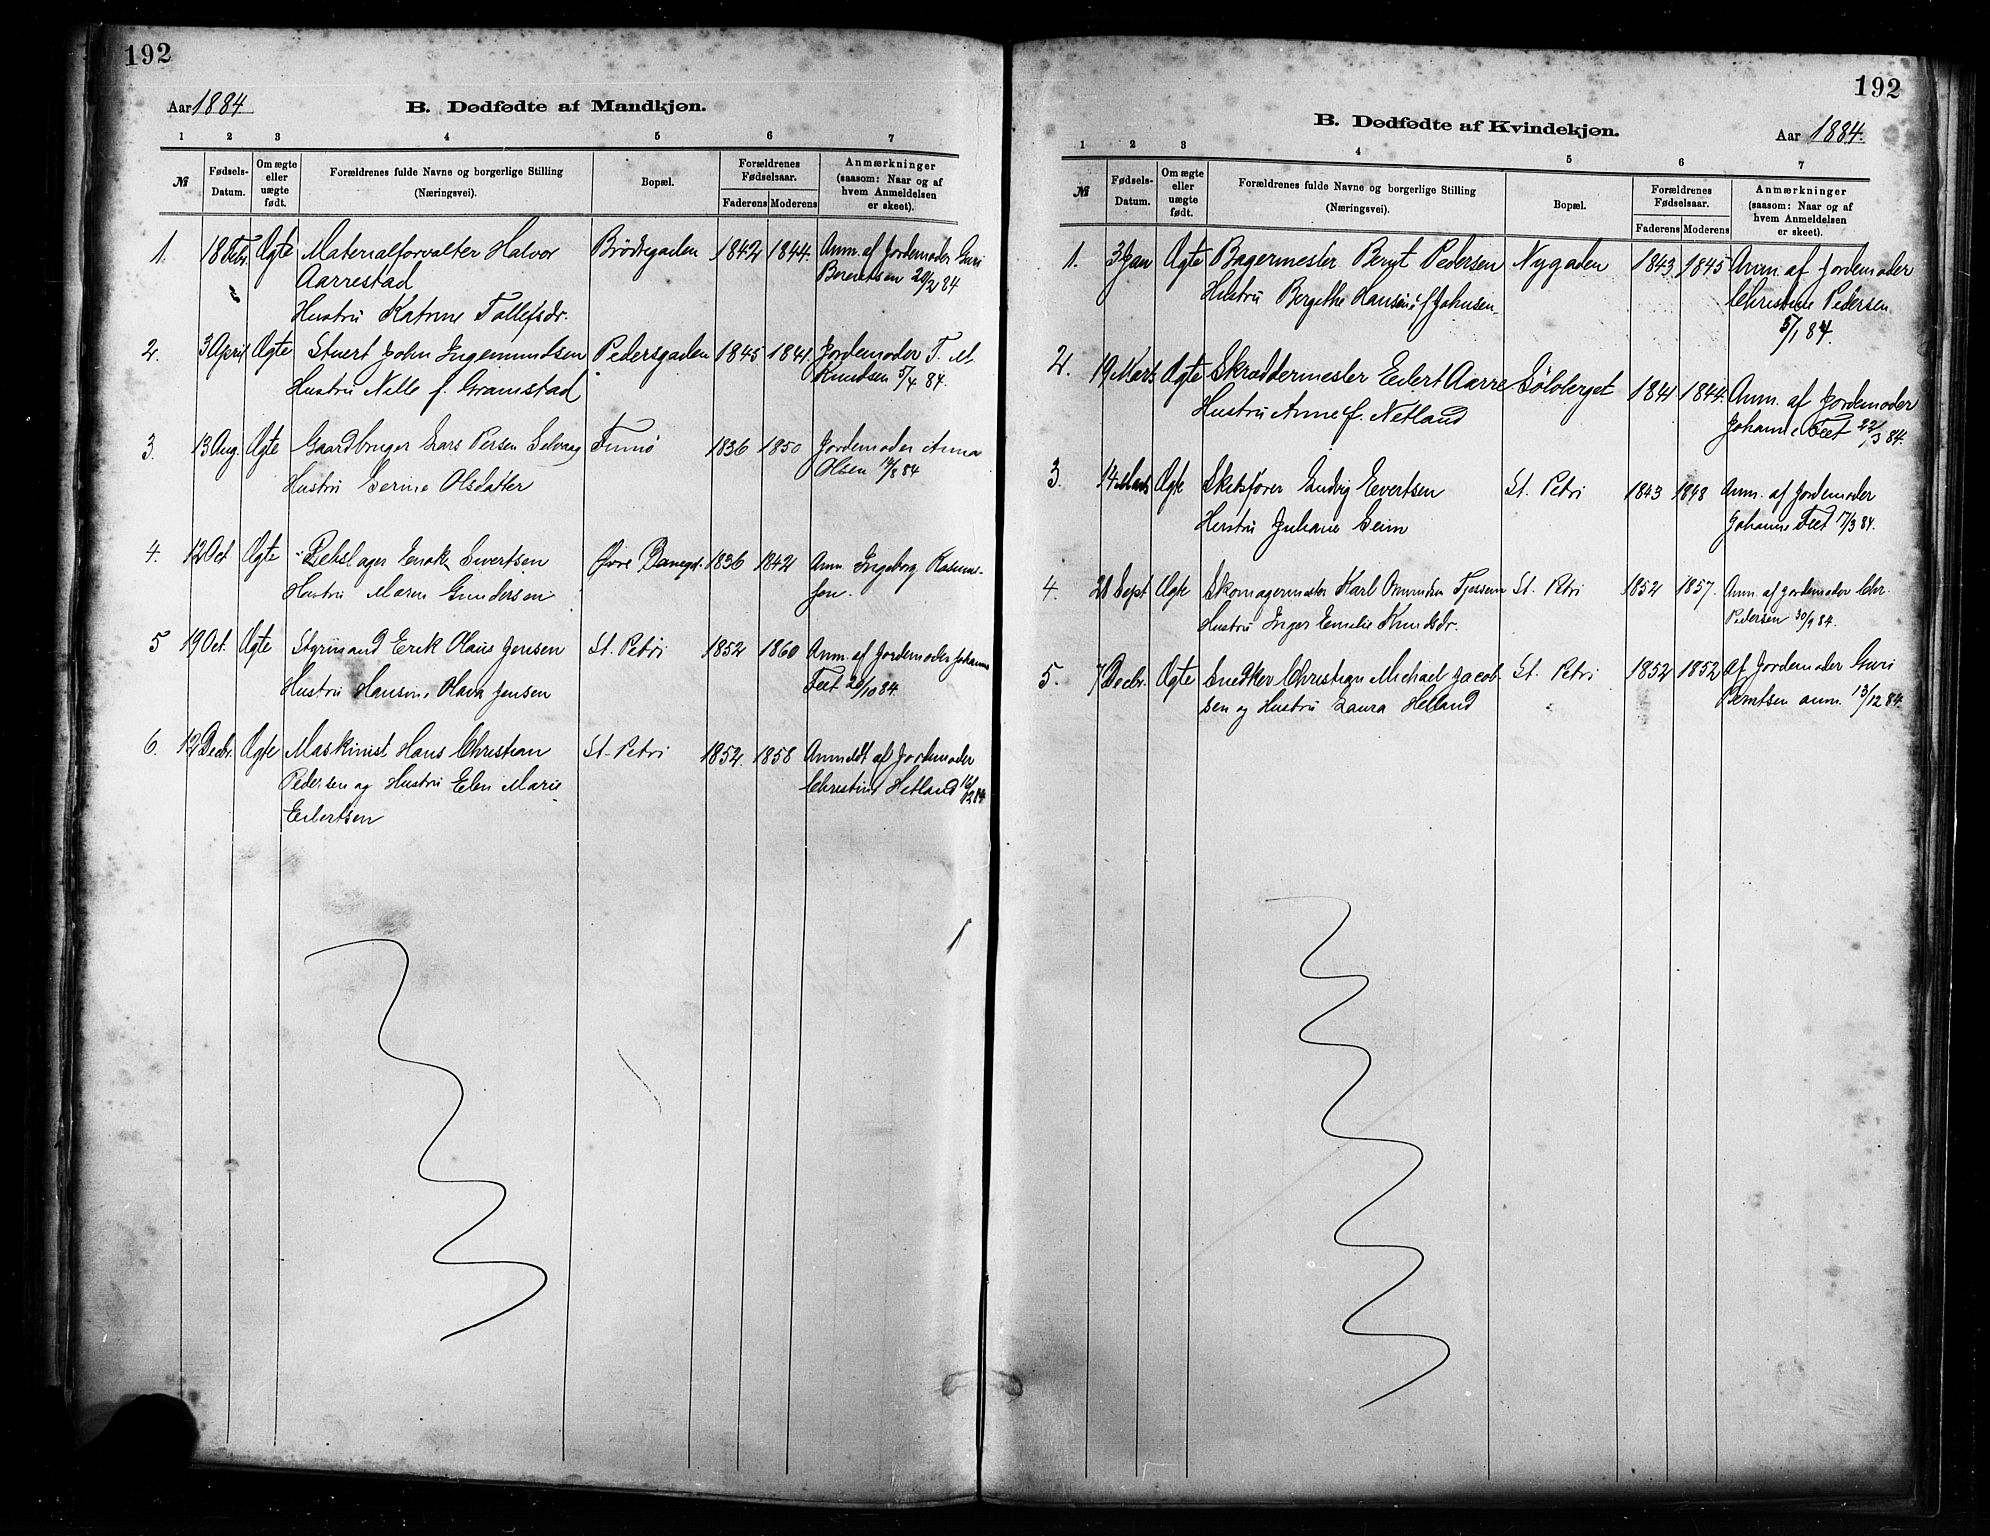 192
Aar 1884
B. Dødfødte af Mandkjøn.
1 2 3 4 5 6 7
№ Fødsels-Datum. Om ægte eller uægte født. Forældrenes fulde Navne og borgerlige Stilling (Næringsvei). Bopæl. Forældrenes Fødselsaar. Faderens Moderens Anmærkninger (saasom: Naar og af hvem Anmeldelsen er skeet).
1. 18 Febr. Ægte Materialforvalter Halvor Brødregaden 1842 1844. Anm. af Jordemoder Guri
Aarrestad Berentsen 20/2 84
Hustru Katrine Tollefsdr.
2. 3 April Ægte Stuert John Ingemundsen Pedersgaden 1845 1841. Jordemoder T. M.
Hustru Nille f. Gramstad Knudsen 5/4 84.
3. 13 Aug. Ægte Gaardbruger Lars Persen Selvaag 1836 1850 Jordemoder Anna
Hustru Serine Olsdatter Olsen 14/8 84
4. 12 Oct Ægte Rebslager Enok Sivertsen Øvre 1836 1842 Anm. Ingeborg Rasmus-
Hustru Maren Gundersen sen.
5 19 Oct. Ægte Styrmand Erik Olaus Jensen St. Petri 1852 1860 Anm. af Jordemoder Johanne
Hustru Hansine Olava Jensen Feet 20/10 84
6. 12 Decbr. Ægte Maskinist Hans Christian St. Petri 1852. 1858 Anmeldt af Jordemoder
Pedersen og Hustru Elen Marie Christine Hetland 16/12 84
Eilertsen
192
B. Dødfødte af Kvindekjøn.
Aar 1884.
1 2 3 4 5 6 7
№ Fødsels-Datum. Om ægte eller uægte født. Forældrenes fulde Navne og borgerlige Stilling (Næringsvei). Bopæl. Forældrenes Fødselsaar. Faderens Moderens Anmærkninger (saasom: Naar og af hvem Anmeldelsen er skeet).
1. 3 Jan Ægte Bagermester Bengt Pedersen Nygaden 1843 1845 Anm. af Jordemoder
Hustru Bergithe Hansine f. Johnsen Christine Pedersen
5/1 84.
2. 19 Marts Ægte Skræddermester Eilert Aarre Sølvberget 1841 1844. Anm. af Jordemoder
Hustru Anne f. Netland Johanne Feet 22/3 84.
3. 14 Marts Ægte Skibsfører Ludvig Evertsen St. Petri 1843 1848 Anm. af Jordemoder
Hustru Juliane Seim Johanne Feet 17/3 84.
4. 28 Sept Ægte Skomagermester Karl St. Petri 1852 1857. Anm. af Jordemoder Chr.
Hustru Inger Emelie Knudsdr. Pedersen 30/9 84.
5. 7 Decbr. Ægte Snedker Christian Michael Jacob- St. Petri 1852 1852 Af Jordemoder Guri
sen og Hustru Laura Helland Berntsen anm. 13/12 84.